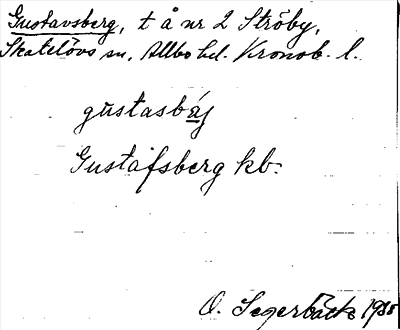 Gustavsberg, t å nr 2 Ströby,
Skatelövs sn, Allbo hd. Kronob. l.
gustasbáj
Gustafsberg kb.
O. Segerbäck 1935